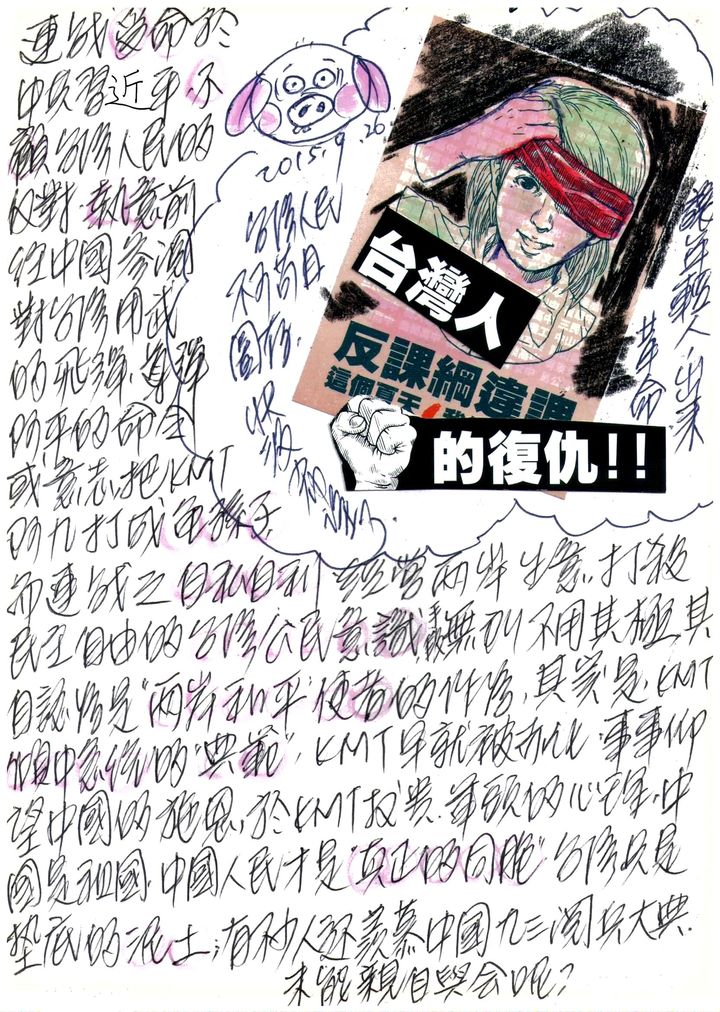 連战受命於
中央習近平,不
顧台湾人民的
反對,執意前
往中國参閱
對台湾用武
的飛彈,導彈
阿平的命令
或意志,把KMT
阿九打成龟孫子,
而連战之自私自利,經营两岸生意,打殺
民主自由的台湾公民意識,無所不用其極,其
自認為是"两岸和平"使者的作為,其实是,KMT
傾中急統的"典範",KMT早就被, 事事仰
望中國的施恩,於KMT权贵,年頭的心里,中
國是祖國,中國人民才是"真正的同胞",台湾只是
墊底的泥土,有不少人还羨慕中國九三阅兵大典,
未能親自與会呢?
2015.9.26.
台湾人民
不可苟且
圖存,
台灣人
反課綱違調
這個夏天
的復仇!!
讓年輕人出來
革命